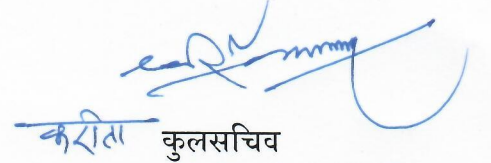 करीता कुलसचिव